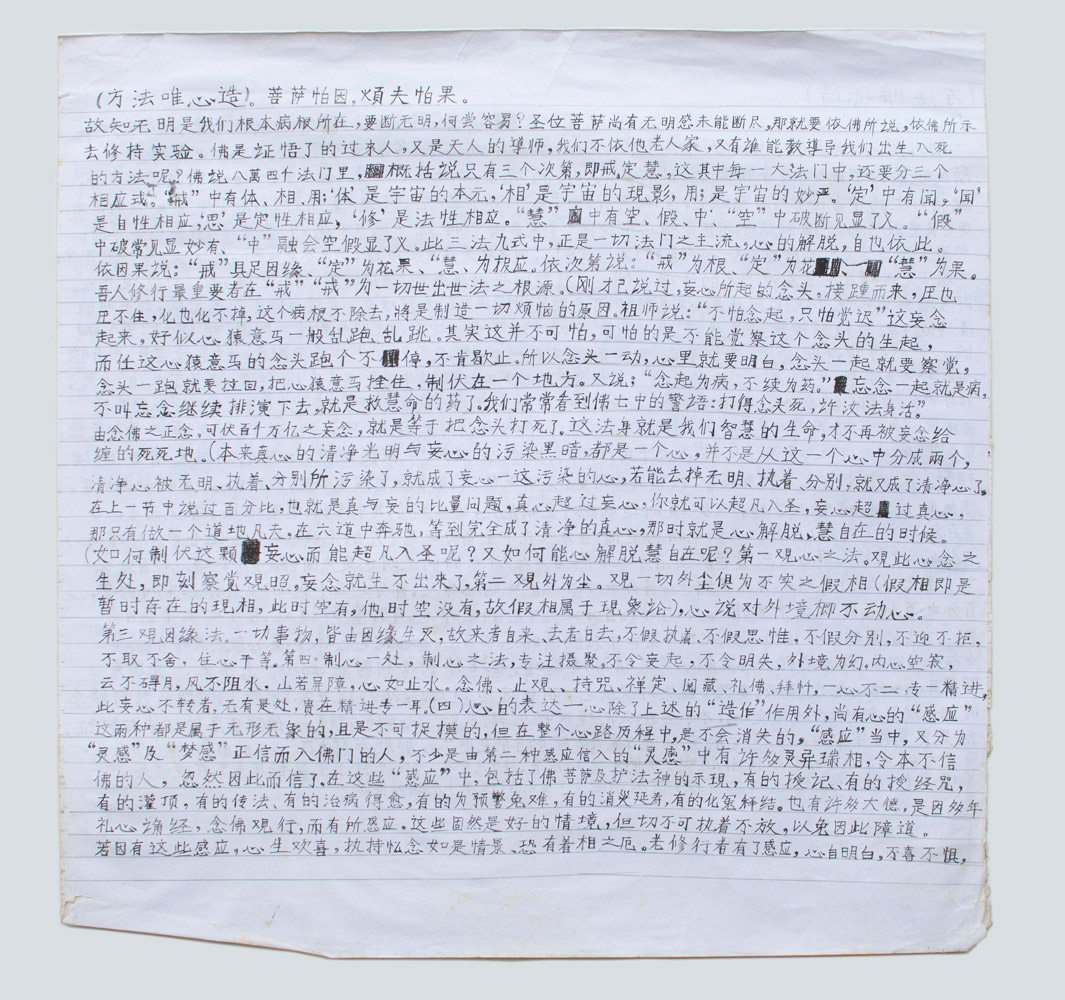 (方法唯心造)。菩萨怕因。烦夫怕果。
故知无明是我们根本病根所在,要断无明,何尝容易?圣位菩萨尚有无明惑未能断尽,那就要依佛所说,依佛所示
去修持实验。佛是证悟了的过来人,又是天人的导师,我们不依他老人家,又有谁能教导导我们出生入死
的方法呢?佛说八萬四千法门里,概括说只有三个次第,即戒定慧,这其中每一大法门中,还要分三个
相应式。“戒”中有体、相、用;‘体’是宇宙的本元,‘相’是宇宙的現影,用;是宇宙的妙严。‘定’中有闻,‘闻’
是自性相应,‘思’是定性相应,‘修’是法性相应。“慧”中有空、假、中、“空”中破断见显了义。“假”
中破常见显妙有、“中”融会空假显了义。此三法九式中,正是一切法门之主流,心的解脱,自也依此。
依因果说:“戒”具足因缘、“定”为花果、“慧、为报应。依次第说:“戒”为根、“定”为花、“慧”为果。
吾人修行最重要者在“戒”“戒”为一切世出世法之根源。(刚才已说过,妄心所起的念头,接踵而来,压也
压不住,化也化不掉,这个病根不除去,将是制造一切烦恼的原因。祖师说:“不怕念起,只怕觉迟”这妄念
起来,好似心猿意马一般乱跑乱跳。其实这并不可怕,可怕的是不能觉察这个念头的生起,
而任这心猿意马的念头跑个不停,不肯歇止。所以念头一动,心里就要明白,念头一起就要察觉,
念头一跑就要拉回,把心猿意马拴住,制伏在一个地方。又说;“念起为病,不续为药。”忘念一起就是病,
不叫忘念继续排演下去,就是救慧命的药了。我们常常看到佛七中的警语:打得念头死,许汝法身活”
由念佛之正念,可伏百千万亿之妄念,就是等于把念头打死了。这法身就是我们智慧的生命,才不再被妄念给
缠的死死地。(本来真心的清净光明与妄心的污染黑暗,都是一个心,并不是从这一个心中分成两个,
清净心被无明、执着、分别所污染了,就成了妄心一这污染的心,若能去掉无明、执着、分别,就又成了清净心了。
在上一节中说过百分比,也就是真与妄的比量问题,真心超过妄心,你就可以超凡入圣,妄心超过真心,
那只有做一个道地凡夫,在六道中奔驰,等到完全成了清净的真心,那时就是心解脱,慧自在的时候。
(如何制伏这颗妄心而能超凡入圣呢?又如何能心解脱慧自在呢?第一观心之法。观此心念之
生处,即刻察觉观照,妄念就生不出来了,第二观外为尘。观一切外尘俱为不实之假相(假相即是
暂时存在的现相,此时空有,他时空没有,故假相属于现象论),心说对外境柳不动心。
第三观因缘法。一切事物,皆由因缘生灭,故来者自来、去者日去,不假执着、不假思惟,不假分别,不迎不拒,
不取不舍,住心平等。第四。制心一处,制心之法,专注摄聚。不令妄起,不令明失,外境为幻,内心空寂,
云不碍月,风不阻水。山若屏障,心如止水。念佛、止观、、持咒、禅定、阅藏、礼佛、拜忏,一心不二,专一精进,
此妄心不转者,无有是处,贵在精进专一耳。(四)心的表达一心除了上述的“造作”作用外,尚有心的“感应”
这两种都是属于无形无象的,且是不可捉摸的,但在整个心路历程中,是不会消失的。“感应”当中,又分为
“灵感”及“梦感”正信而入佛门的人,不少是由第二种感应信入的“灵感”中有许多灵异瑞相,令本不信
佛的人,忽然因此而信了,在这些“感应”中,包括了佛菩萨及护法神的示现,有的授记、有的授经咒,
有的灌顶,有的传法、有的治病得愈,有的为预警免难,有的消灾延寿,有的化冤释结。也有许多大德,是因多年
礼心诵经,念佛观行,而有所感应。这些固然是好的情境,但切不可执着不放,以免因此障道。
若因有这些感应,心生欢喜,执持忆念如是情景、恐有着相之厄。老修行者有了感应,心自明白,不喜不惧,